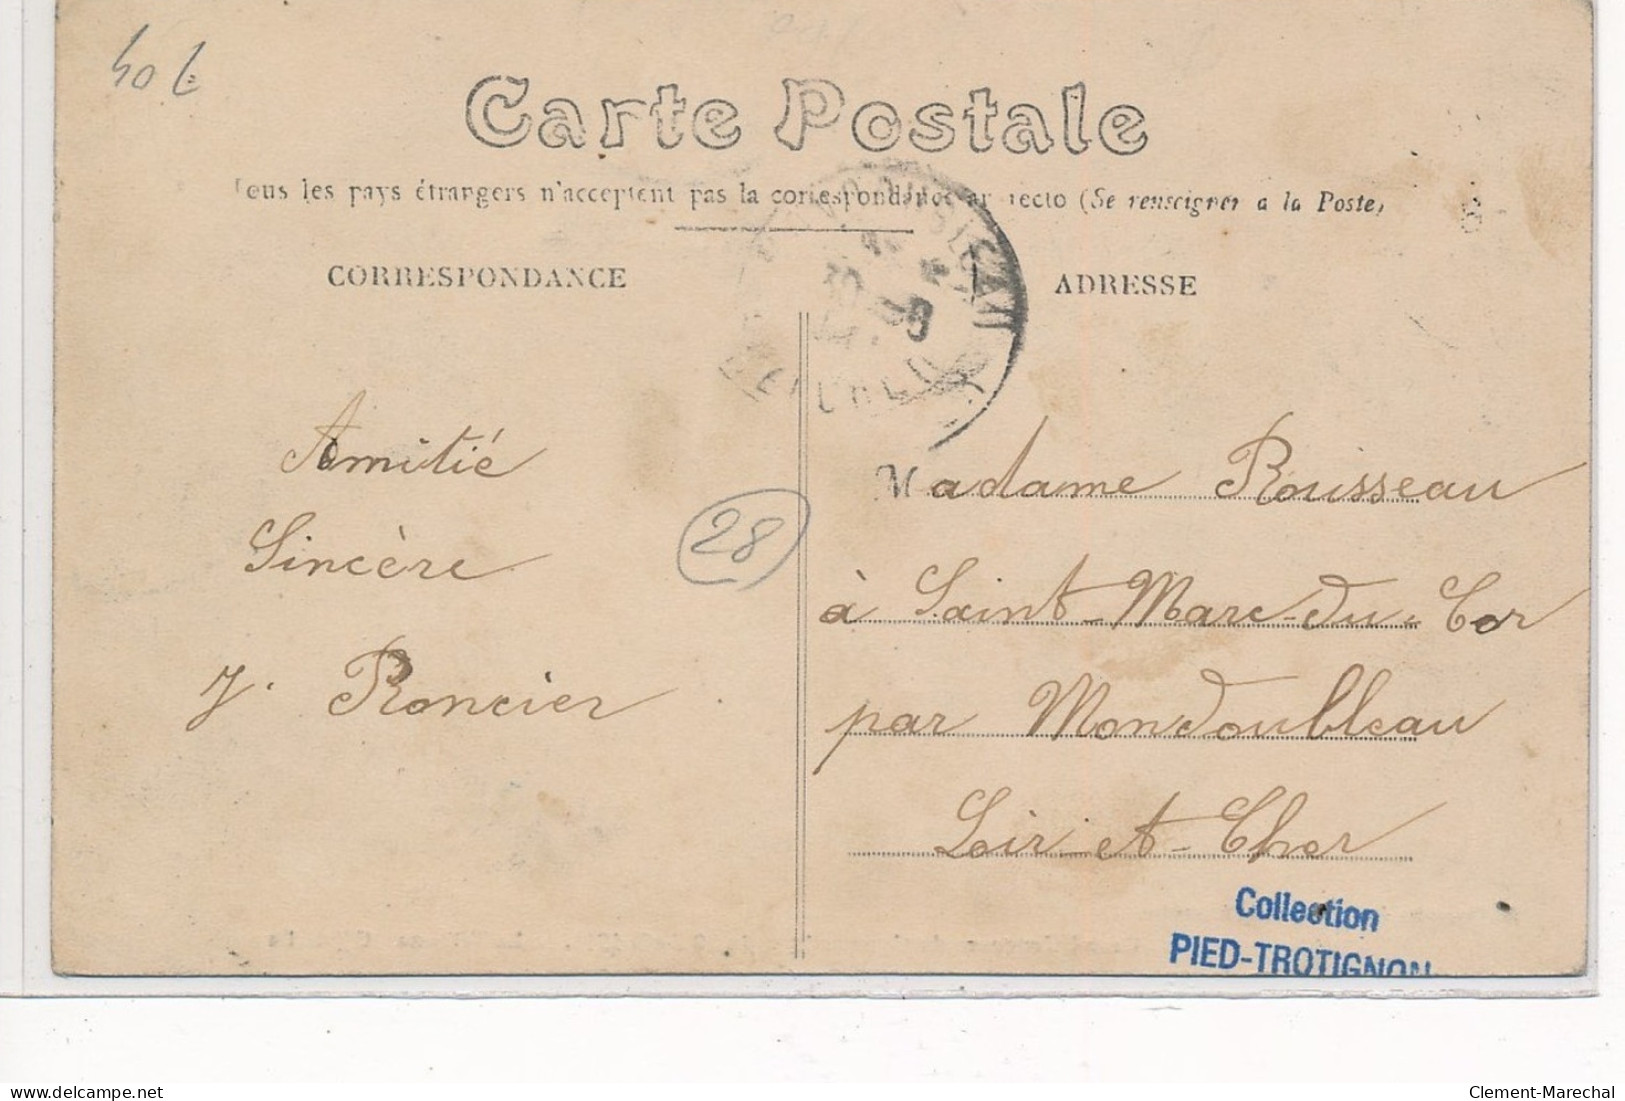 Carte Postale
Tous les pays étrangers n'acceptent pas la correspondance au recto (Se renseigner a la Poste)
CORRESPONDANCE
ADRESSE
Amitié
Sincère
J. Roncier
28
Madame Rousseau
à Saint-Marc-du-Cor
par Mondoubleau
Loir-et-Cher
Collection
PIED-TROTIGNON
delcampe.net
Clement-Marechal